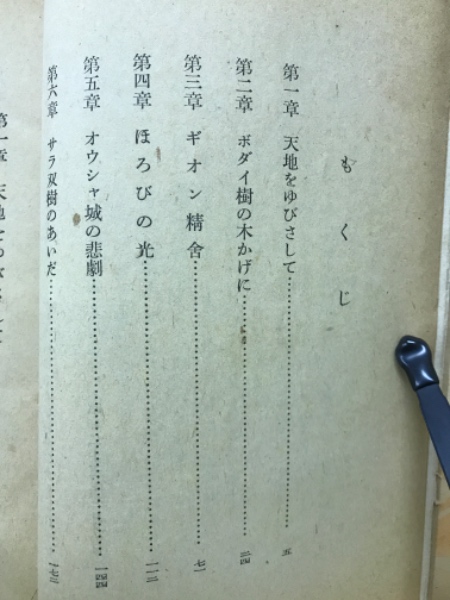 もくじ
第一章 天地をゆびさして…………五
第二章 ボダイ樹の木かげに…………三四
第三章 ギオン精舎…………七一
第四章 ほろびの光…………一一二
第五章 オウシャ城の悲劇…………一四四
第六章 サラ双樹のあいだ…………一七三
第一章 天地をゆびさして